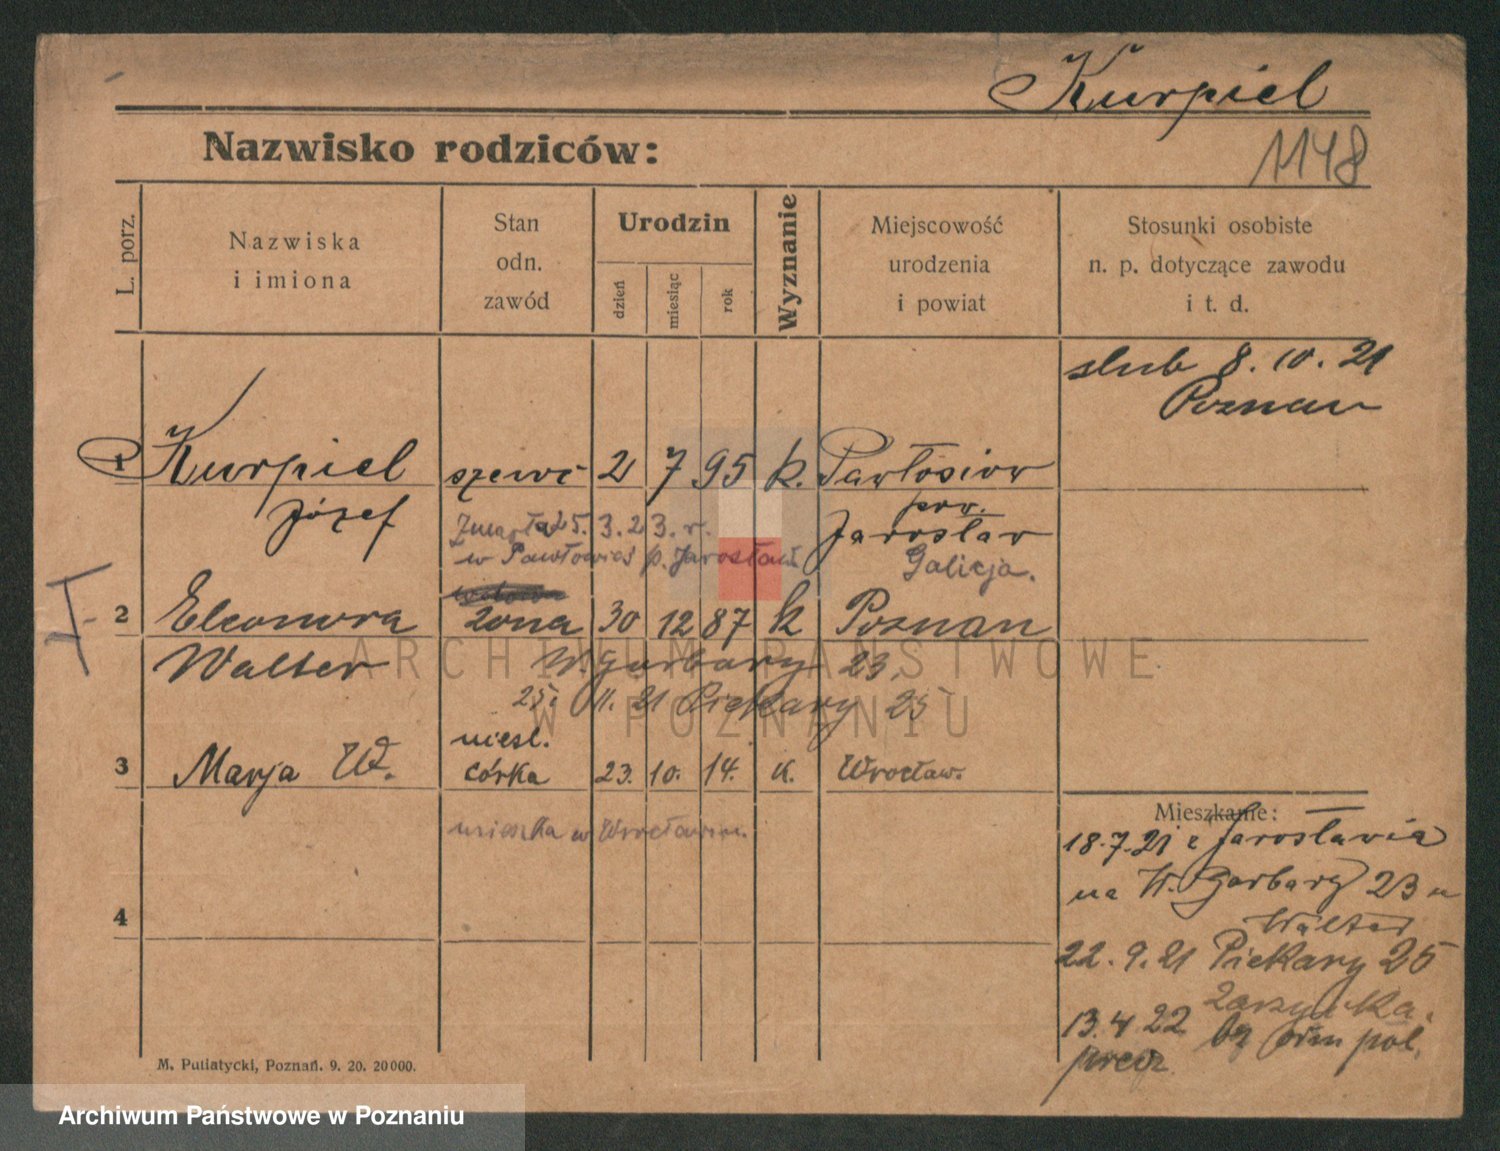 Kurpiel
1148
Nazwisko rodziców:
L. porz.
Nazwiska
i imiona
Stan
odn.
zawód
Urodzin
dzień
miesiąc
rok
Wyznanie
Miejscowość
urodzenia
i powiat
Stosunki osobiste
n. p. dotyczące zawodu
i t. d.
slub 8. 10. 21
Poznan
1 Kurpiel szewc 2 7 95 k. Pawłosiow
Józef pow.
Jaroslav
Zmarła 25. 3. 23. r.
w Pawłowieś p. Jarosław
Galicja.
I
2 Eleonora żona 30 12 87 k Poznan
Walter W. Garbary 23.
25. 11. 21 Piekary 25
niesl.
3 Marja W. córka 23. 10. 14. k. Wrocław.
mieszka w Wrocławiu.
Mieszkanie:
18.7.21 z Jarosławia
na W. Garbary 23 u
Walter
22. 9. 21 Piekary 25
13. 4. 22
4
M. Putiatycki, Poznań. 9. 20. 20000.
ARCHIWUM PAŃSTWOWE
W POZNANIU
Archiwum Państwowe w Poznaniu